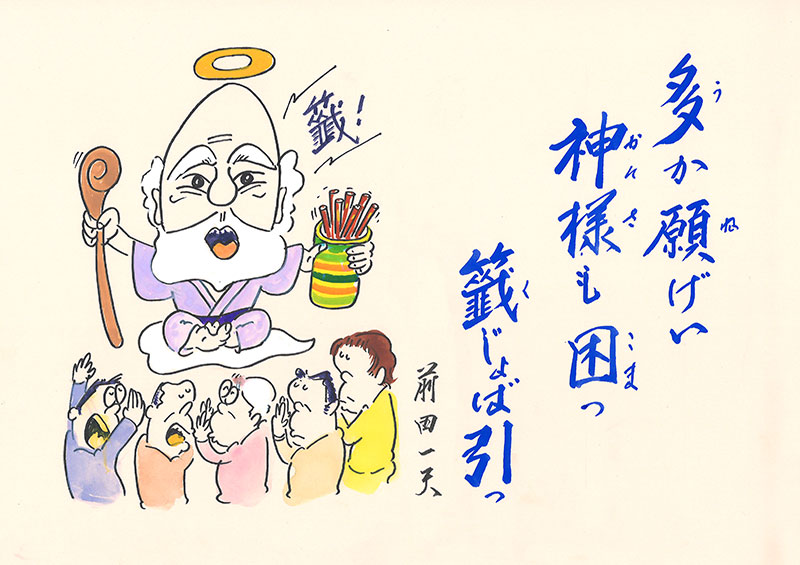 多か願げい
神様も困っ
籤じょば引っ
うね
かんさ
こま
く
前田一天
籤!